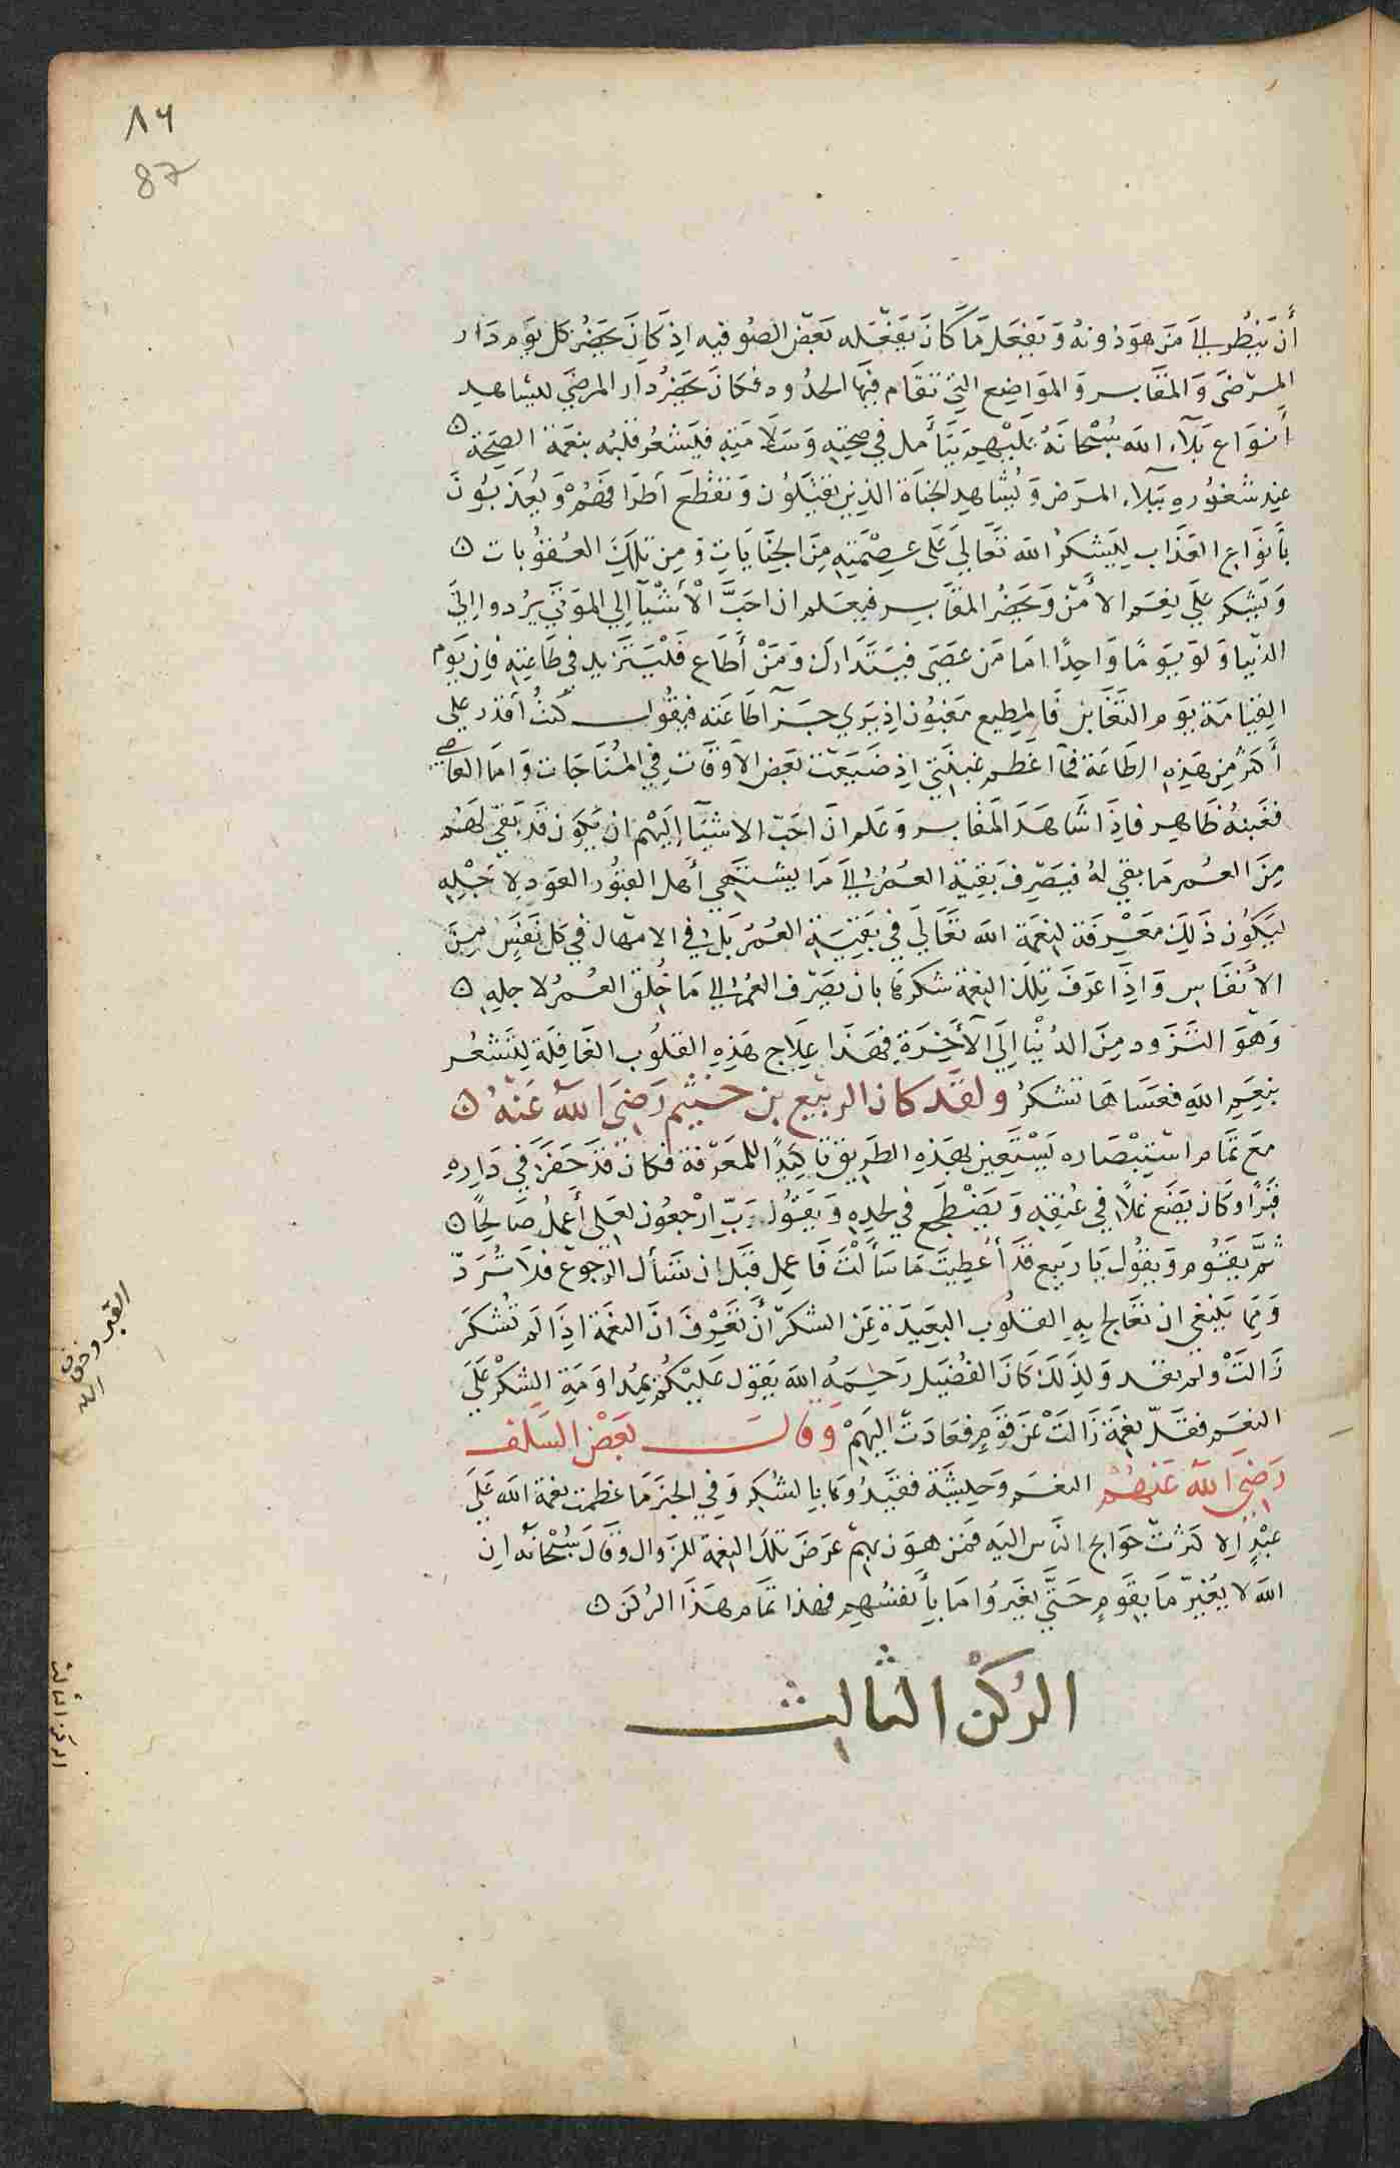 ٨٦
87
أَن يَنظُر إلى مَن هوَ دُونهُ وَيَفعَل مَا كَانَ يَفعَله بَعض الصُوفيه اِذ كَانَ يَحضُر كل يَوم دَار
المرضَى وَالمقَابِر وَالموَاضِع التِي تقَام فِيهَا الحُدُود فكانَ يَحضُر دَار المرضَي ليشاهِد
أنوَاع بَلآء الله سُبْحَانَهُ عَلَيْهِم ثم يَتَأَمل في صِحتِهِ وَسَلامَتِهِ فيَشعُر قلبُه بنعمَة الصِحَة
عِند شعُورِهِ ببَلآء المرَض وَيُشاهِد الجناة الذِين يقتَلُون وَتقْطَع أطرَافهُمْ وَيُعَذبُونَ
بأَنوَاع العَذَاب لِيَشكرُ الله تعَالي عَلَى عِصْمَتِهِ مِنَ الجِنَايَاتِ وَمِن تلكَ العُقوُبات
وَيَشكر عَلَي نِعَم الأَمن وَيَحضُر المقَابِر فيَعلم ان احَبَّ الْأَشْيَآ اِلي الموَتَي يرُدوا اِليَ
الدنيا وَلو يَومًا وَاحِدًا امَا مَن عَصَى فيَتَدَارَك وَمَنْ أَطَاع فَلْيَتَزيد في طَاعَتِهِ فاِن يَوم
القِيَامَة يَوم التَغَابن فَالمطِيع مَغبُون اِذ يَرَي جَزآ طَاعَته فيَقُول كنتُ أقدر علي
أَكثر مِن هَذِهِ الطَاعَة فمآ اعَظم غبنتي اِذ ضَيَعت بَعض الأَوقَات فِي المُنَاجَات وَامَا العَاصِي
فغَبنهُ ظَاهِر فاِذَا شَاهَدَ المقَابِر وَعَلم انَ احَب الاشيَآ اِليَهْم ان يَكوَن قَد بَقيَ لهُم
مِنَ العُمر مَا بقي لهُ فيَصرِف بَقِيَة العُمُر اِلى مَا يَشتَهي أَهل القبُور العَود لِاَجْلِهِ
ليَكُون ذَلِكَ مَعْرِفَة لِنعمَة الله تعَالَى في بَقِيَةِ العُمُر بَل في الامهَال في كل نَفَسٍ مِنَ
الأَنفَاس وَاِذَا عَرفَ تِلكَ النِعمَة شكرهَا بان يَصَرف العُمُر اِلي مَا خُلِقَ العُمُر لاَجلِهِ
وَهوَ التَزَود مِنَ الدُنْيَا اِلَى الأَخِرَةِ فهَذَا عِلَاج هَذِهِ القلُوب الغَافِلَة لِتَشعُر
بنِعَمِ اللهِ فعَسَاهَا تشكرُ ولقَد كان الربيع بن خثيم رَضِيَ اللهُ عَنْهُ
مَعَ تمَام استِبْصَاره يَسْتَعِين بهَذِهِ الطَرِيق تَاكِيدًا لِلمَعْرفة فكانَ قَد حَفَرَ في دَارِهِ
قبْرًا وَكان يَضَع غلًا في عُنقِهِ وَيَضْطَجع في لحدِهِ وَيَقُول رَبِّ ارْجِعُون لعَلي أَعملُ صَالحًا
ثُمَّ يَقُوم وَيقُول يَا ربيع قَد أُعْطِيتَ مَا سَأَلْتَ فَاعمِل قبَل ان تسَأَل الرجُوع فلَا تُرَدّ
وَمِمَا يَنبَغي ان تعَالج بِهِ القلُوب البَعِيدَة عَن الشكر أَن تعَرِف انَ النعمَة اِذَا لَم تُشكرَ
زَالَتْ وَلم تعُد وَلِذَلكَ كَانَ الفُضَيل رَحِمَهُ الله يَقوَل عَليْكُم بمُدَاوَمَةِ الشكْر عَلَي
النعَم فقَلّ نِعمَة زَالَتْ عَن قَومٍ فعَادَت اليَهمْ وَقالَ بَعض السَلف
رَضِيَ اللهُ عَنهُم النعَم وَحشِيَة فقَيِدُوهَا بالشُكر وَفِي الخبَر مَا عَظمت نعمَة الله عَلَى
عَبْدٍ اِلا كَثرتْ حَوَايج الناس اليَه فمَن هوَن بهِم عَرَضَ تلكَ النِعمَة للزوَال وَقَالَ سُبْحَانَه اِن
الله لا يُغيِّر مَا بقَومٍ حَتَّى يُغَيرُوا مَا بِأَنفسُهِم فهَذا تمَام هَذَا الركن
الرُكن الثالِث
القبر وخوف
الله
الركن الثالث